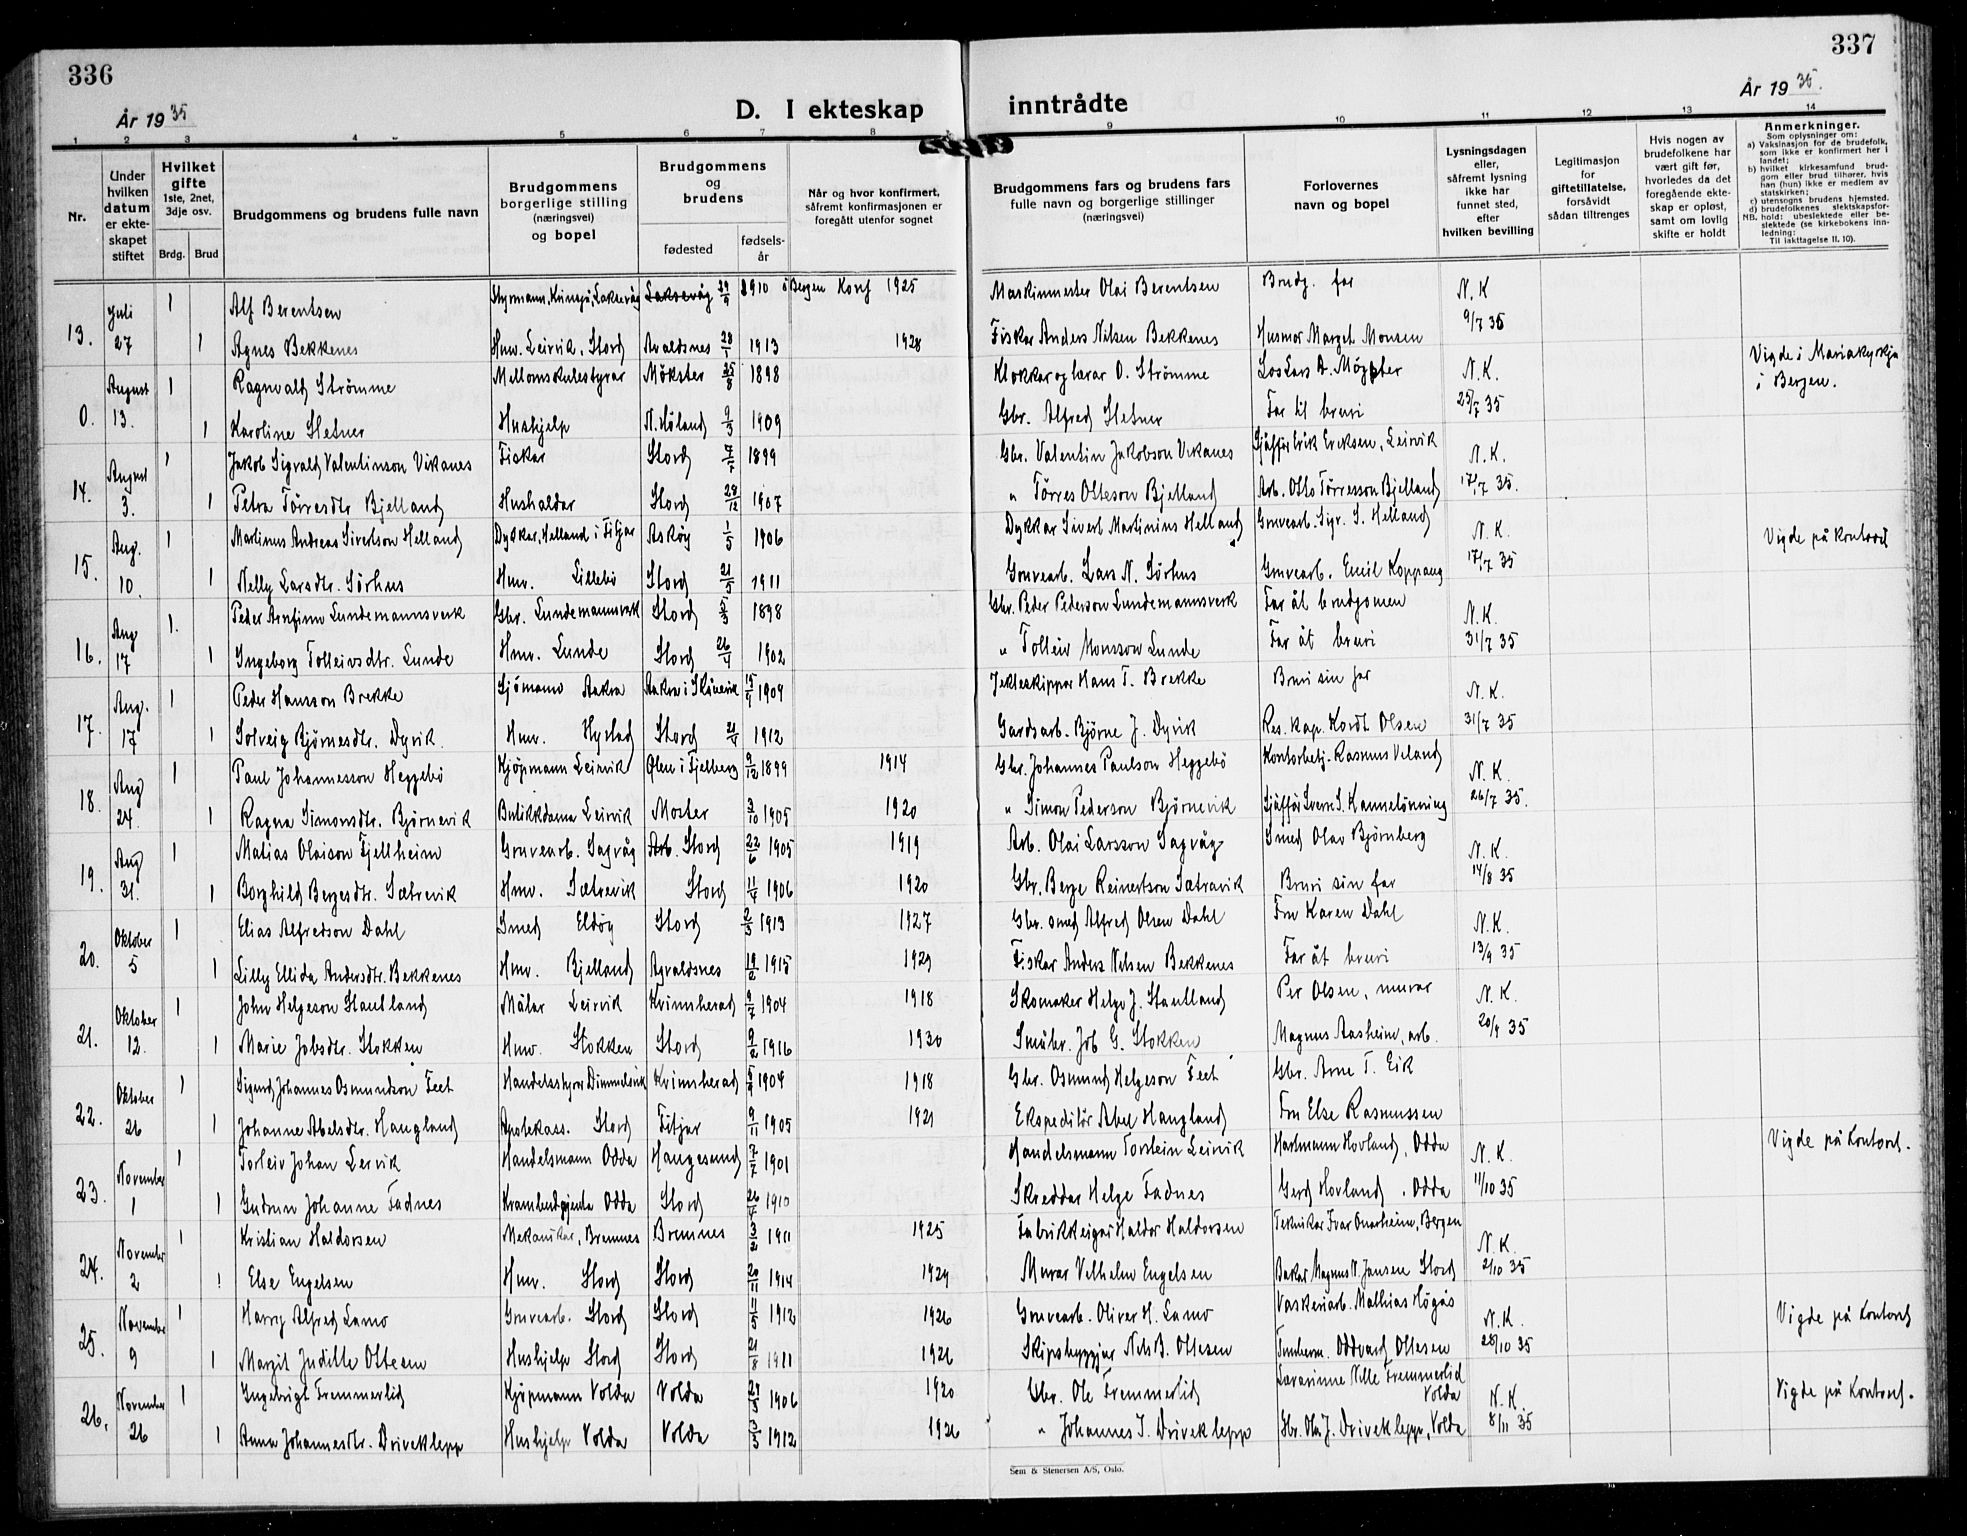 336
337
År 1935
År 1935.
D. I ekteskap inntrådte
1 2 3 4 5 6 7 8 9 10 11 12 13 14
Nr.
Under hvilken datum er ekteskapet stiftet
Hvilket gifte 1ste, 2net, 3dje osv.
Brdg. Brud
Brudgommens og brudens fulle navn
Brudgommens borgerlige stilling (næringsvei) og bopel
Brudgommens og brudens
fødested
fødselsår
Når og hvor konfirmert, såfremt konfirmasjonen er foregått utenfor sognet
Brudgommens fars og brudens fars fulle navn og borgerlige stillinger (næringsvei)
Forlovernes navn og bopel
Lysningsdagen eller, såfremt lysning ikke har funnet sted, efter hvilken bevilling
Legitimasjon for giftetillatelse, forsåvidt sådan tiltrenges
Hvis nogen av brudefolkene har vært gift før, hvorledes da det foregående ekteskap er opløst, samt om lovlig skifte er holdt
Anmerkninger.
Som oplysninger om:
a) Vaksinasjon for de brudefolk, som ikke er konfirmert her i landet;
b) hvilket kirkesamfund brudgom eller brud tilhører, hvis han (hun) ikke er medlem av statskirken;
c) utensogns brudens hjemsted.
d) brudefolkenes slektskapsforhold: ubeslektede eller beslektede (se kirkebokens innledning:
NB. Til iakttagelse II. 10).
13. Juli 27 1 Alf Berentsen Styrmann, Kringsjå, Laksevåg Laksevåg 29/9 1910 Bergen Konf 1925 Maskinmester Olai Berentsen Brudg. far N.K 9/7 35
1 Agnes Bekkenes Hmv. Leirvik, Stord Avaldsnes 28/1 1913 1928 Fisker Anders Nilsen Bekkenes Husmor Marget Monsen
0. August 13. 1 Ragnvald Strømme Mellomskulestyrar Møkster 25/8 1898 Klokkar og lærar O. Strømme Lars D. Møgster N.K. 25/7 35 Vigde i Mariakyrkja i Bergen.
1 Karoline Hetner Hushjelp N. Høland 9/3 1909 Gbr. Alfred Hetner Far til bruri
14. August 3. 1 Jakob Sigvald Valentinson Vikanes Fiskar Stord 7/7 1899 Gbr. Valentin Jakobson Vikanes Sjåffør Erik Eriksen, Leirvik N.K. 17/7 35.
1 Petra Tørresdtr Bjelland Hushaldar Stord 28/12 1907 " Tørres Otteson Bjelland Arb. Otto Tørresson Bjelland
15. Aug. 10. 1 Martinus Andreas Sivertson Helland Dykkar, Helland i Fitjar Askøy 1/5 1906 Dykkar Sivert Martinius Helland Gruvearb. Sigv. S. Helland N.K. 17/7 35 Vigde på kontoret
1 Nelly Larsdtr. Sørhus Hmv. Lillebø Stord 21/5 1911 Gruvearb. Lars N. Sørhus Gruvearb. Emil Koppang
16. Aug 17 1. Peder Arnfinn Lundemannsverk Gbr. Lundemannsverk Stord 5/3 1898 Gbr. Peder Pederson Lundemannsverk Far åt brudgomen N.K. 31/7 35
1 Ingeborg Tolleivsdtr. Lunde Hmv. Lunde Stord 26/4 1902 " Tolleiv Monsson Lunde Far åt bruri
17. Aug. 17 1 Peder Hansson Brekke Sjömann Aakra Aakra i Skånevik 15/9 1909 Jekteskippar Hans T. Brekke Bruri sin far N.K. 31/7 35
1 Solveig Bjørnesdtr. Dyvik. Hmv. Hystad Stord 21/4 1912 Gardsarb. Bjørne J. Dyvik Res. kap. Kordt Olsen
18. Aug 24. 1 Paul Johannesson Heggebö Kjøpmann Leirvik Ølen i Fjelberg 9/12 1899 1914 Gbr. Johannes Paulson Heggebö Kontorbetj. Rasmus Veland N.K. 26/7 35.
1 Ragna Simonsdtr. Bjørnevik Butikkdama Leirvik Moster 3/10 1905 1920 " Simon Pederson Bjørnevik Sjåffør Sverre S. Kannelönning
19. Aug 31. 1 Matias Olaison Fjellheim Gruvearb. Sagvåg Arb. Stord 22/6 1905 1919 Arb. Olai Larsson Sagvåg Smed Olav Bjørnberg N.K. 14/8 35
1 Borghild Bergesdtr. Sætrevik Hmv. Sætrevik Stord 11/4 1906 1920 Gbr. Berge Reinertson Sætravik Bruri sin far
20. Oktober 5 1 Elias Alfredson Dahl Smed Eldøy Stord 2/3 1913 1927 Gbr. smed Alfred Olsen Dahl Fru Karen Dahl N.K. 13/9 35
1 Lilly Ellida Andersdtr. Bekkenes Hmv. Bjelland Avaldsnes 19/2 1915 1929 Fiskar Anders Nilsen Bekkenes Far åt bruri
21. Oktober 12. 1 John Helgeson Stautland Målar Leirvik Kvinnherad 9/7 1904 1918 Skomaker Helge J. Stautland Per Olsen, murar N.K. 20/9 35
1 Marie Jobsdtr. Stokken Hmv. Stokken Stord 9/2 1916 1930 Småbr. Job G. Stokken Magnus Aasheim, arb.
22. Oktober 26 1 Sigurd Johannes Osmundson Feet Handelsstyrer Dimmelsvik Kvinnherad 5/9 1904 1918 Gbr. Osmund Helgeson Feet Gbr. Arne T. Eik
1 Johanne Abelsdtr. Haugland Apotekass. Stord Fitjar 9/11 1905 1921 Ekspeditör Abel Haugland Fru Else Rasmussen
23. November 1 1 Torleiv Johan Leirvik Handelsmann Odda Haugesund 7/7 1901 Handelsmann Torstein Leirvik Hartmann Hovland, Odda N.K. 11/10 35 Vigde på kontoret.
1 Gudrun Johanne Fadnes Krambudgjenta Odda Stord 26/4 1910 Skreddar Helge Fadnes Gerd Hovland, Odda
24. November 2 1 Kristian Haldorsen Mekanikar, Bremnes Bremnes 3/2 1911 1925 Fabrikkeigar Haldor Haldorsen Teknikar Ivar Onarheim, Bergen N.K. 2/10 35
1 Else Engelsen Hmv. Stord Stord 20/11 1914 1929 Murar Vilhelm Engelsen Bakar Magnus N. Jansen Stord
25. November 9 1 Harry Alfred Lamo Gruvearb. Stord Stord 11/5 1912 1926 Gruvearb. Oliver H. Lamo Vaskeriarb. Mathias Högås N.K. 28/10 35 Vigde på kontoret
1 Margit Judille Ottesen Hushjelp Stord Stord 21/8 1911 1926 Skipsbyggjar Nils B. Ottesen Tømberm. Oddvard Ottesen
26. November 26 1 Ingebrigt Fremmerlid Kjøpmann Volda Volda 29/5 1906 1920 Gbr. Ole Fremmerlid Lærarinne Nille Fremmerlid Volda N.K. 8/11 35 Vigde på kontoret.
1 Anna Johannesdtr. Driveklepp Hushjelp Volda Volda 3/5 1912 1926 " Johannes I. Driveklepp Gbr. Ola J. Driveklepp, Volda
Sem & Stenersen A/S, Oslo.